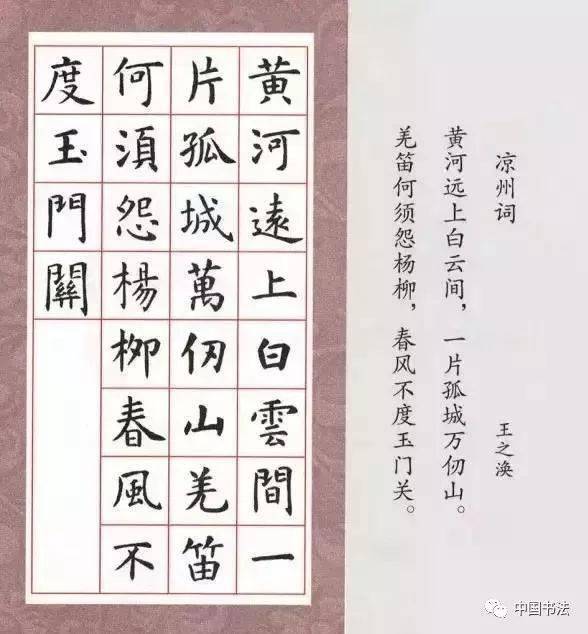 黄河遠上白雲間一
片孤城萬仞山羌笛
何須怨楊柳春風不
度玉門關
凉州词
王之涣
黄河远上白云间，一片孤城万仞山。
羌笛何须怨杨柳，春风不度玉门关。
中国书法